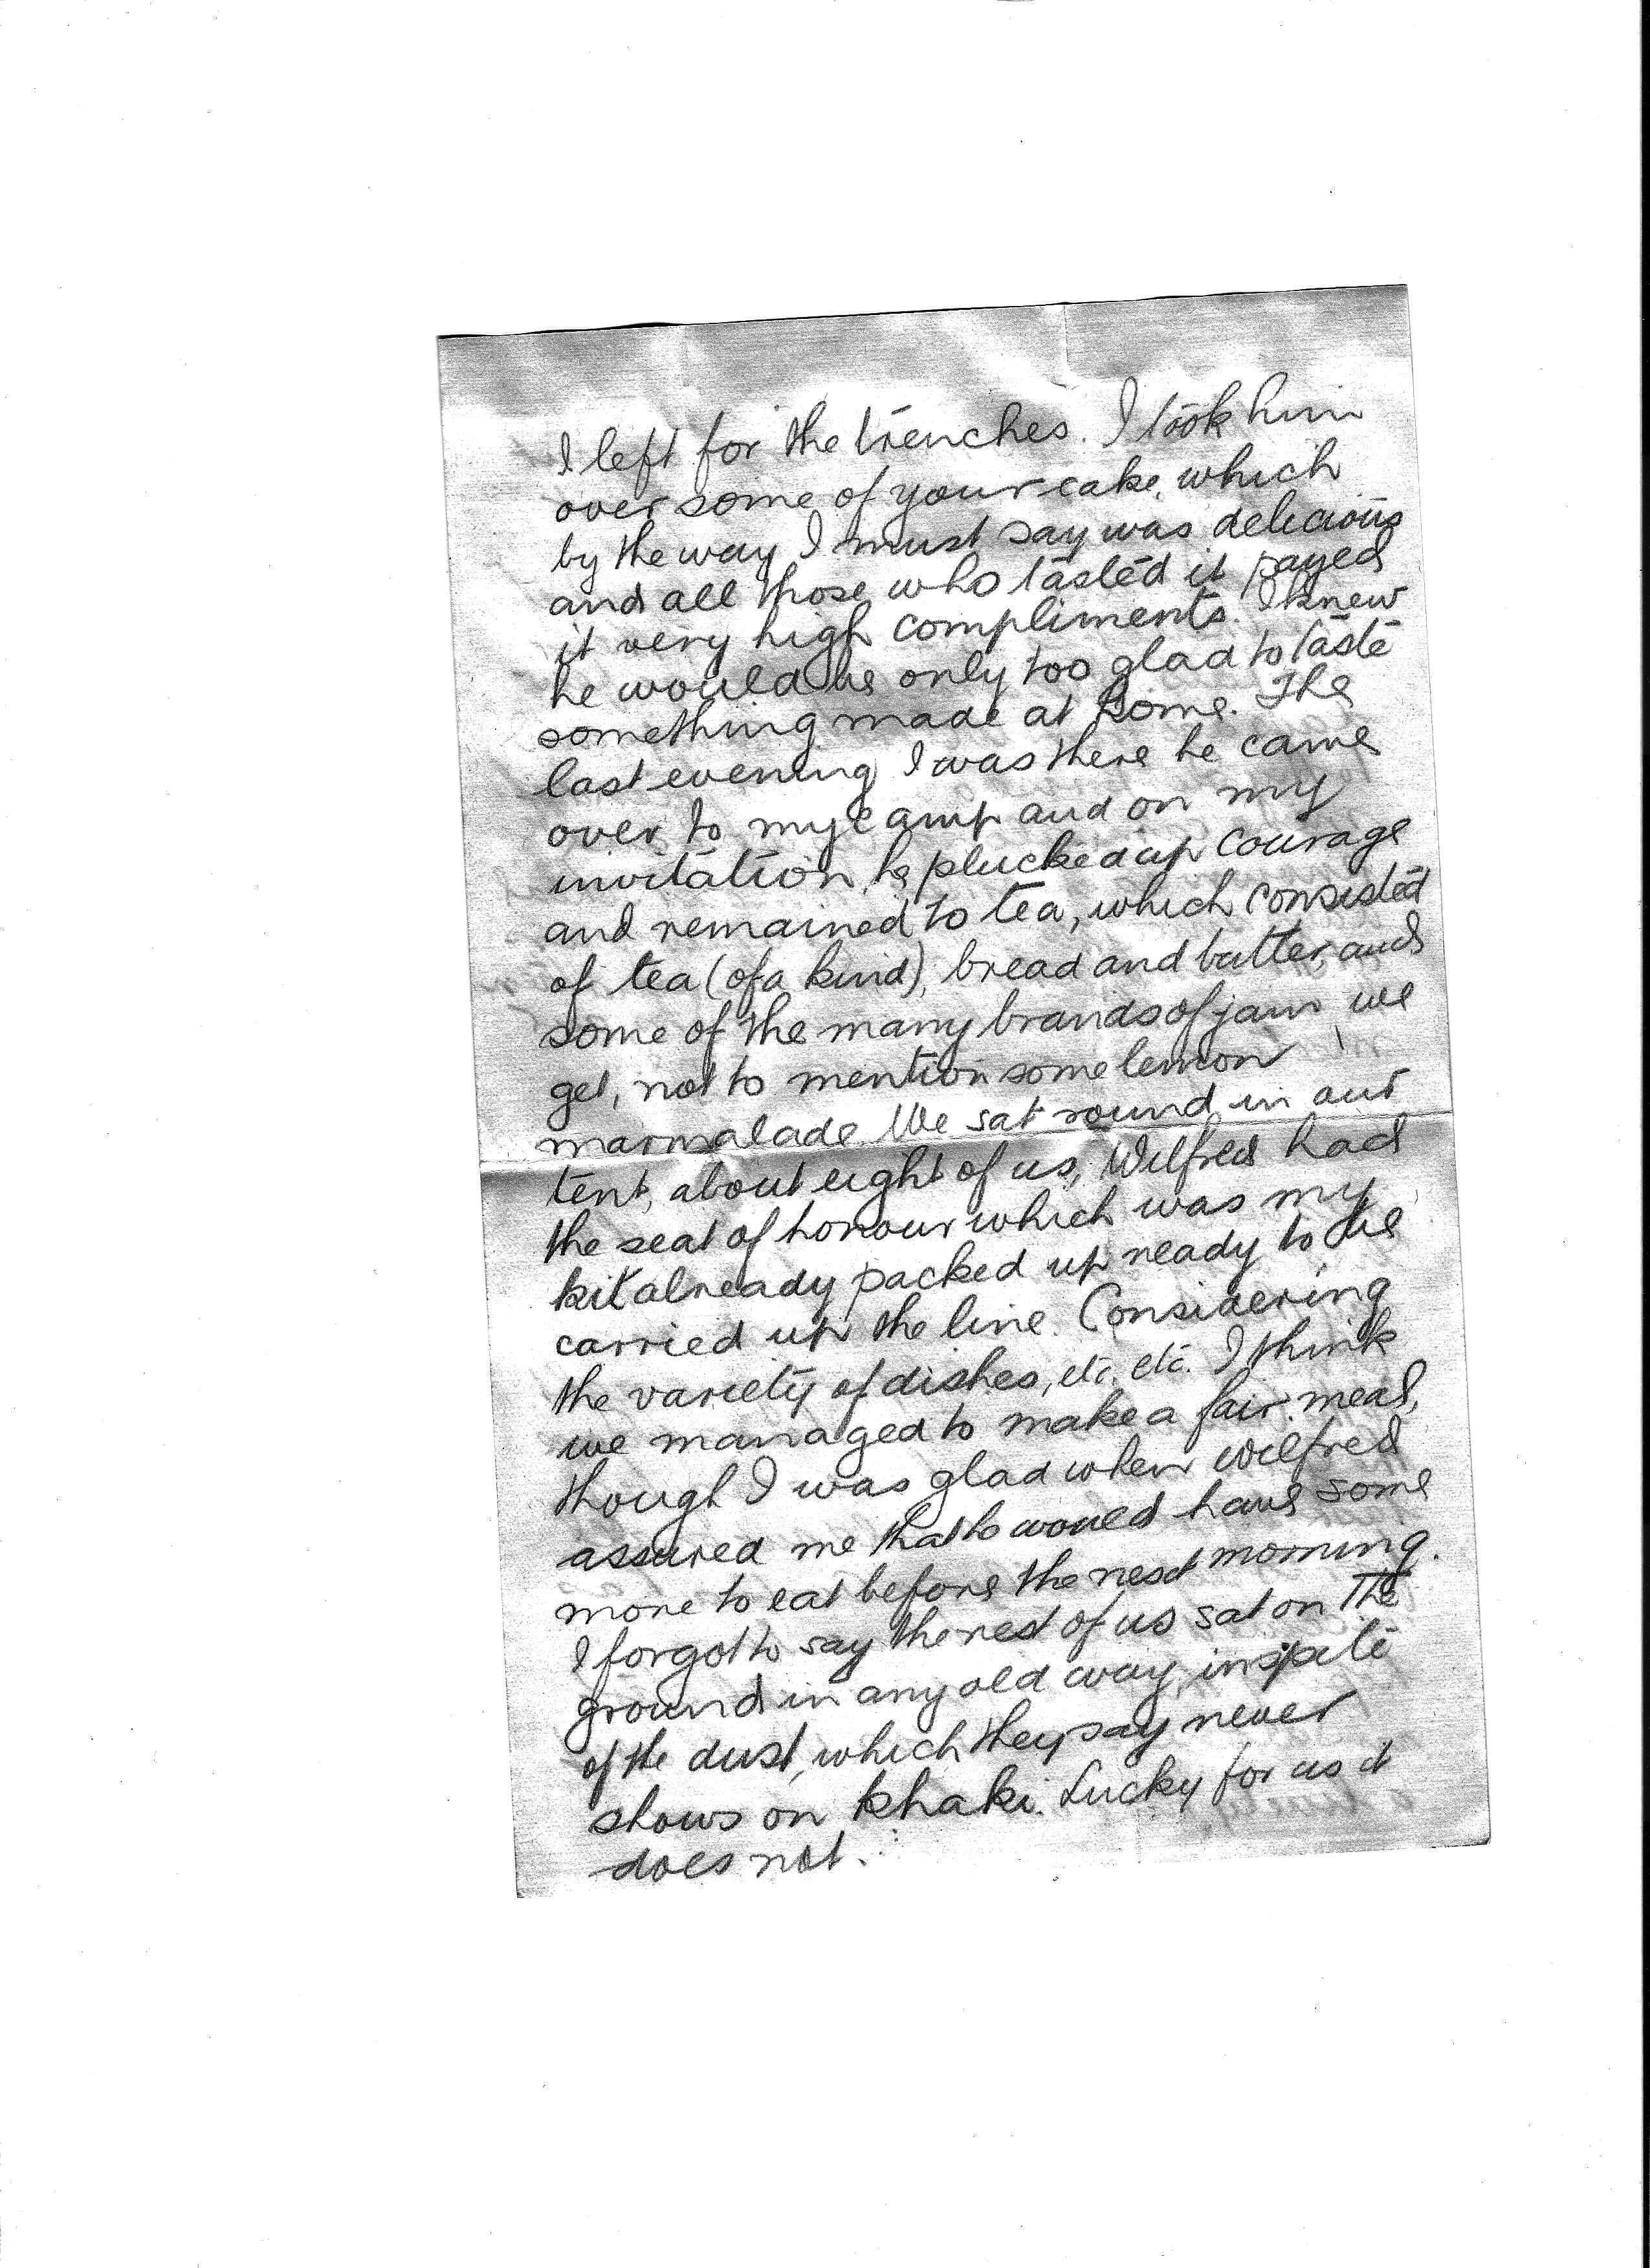 I left for the trenches. I took him
over some of your cake, which
by the way I must say was delicious
and all those who tasted it payed
it very high compliments. I knew
he would be only too glad to taste
something made at home. The
last evening I was there he came
over to my camp and on my
invitation he plucked up courage
and remained to tea, which consisted
of tea (of a kind), bread and butter, and
some of the many brands of jam we
get, not to mention some lemon
marmalade. We sat round in our
tent, about eight of us, Wilfred had
the seat of honour which was my
kit already packed up ready to be
carried up the line. Considering
the variety of dishes, etc. etc. I think
we managed to make a fair meal,
though I was glad when Wilfred
assured me that he would have some
more to eat before the next morning.
I forgot to say the rest of us sat on the
ground in any old way, inspite
of the dust, which they say never
shows on khaki. Lucky for us it
does not.